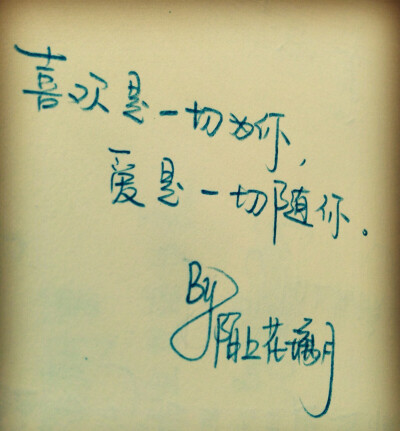 喜欢是一切为你,
爱是一切随你。
By
陌上花